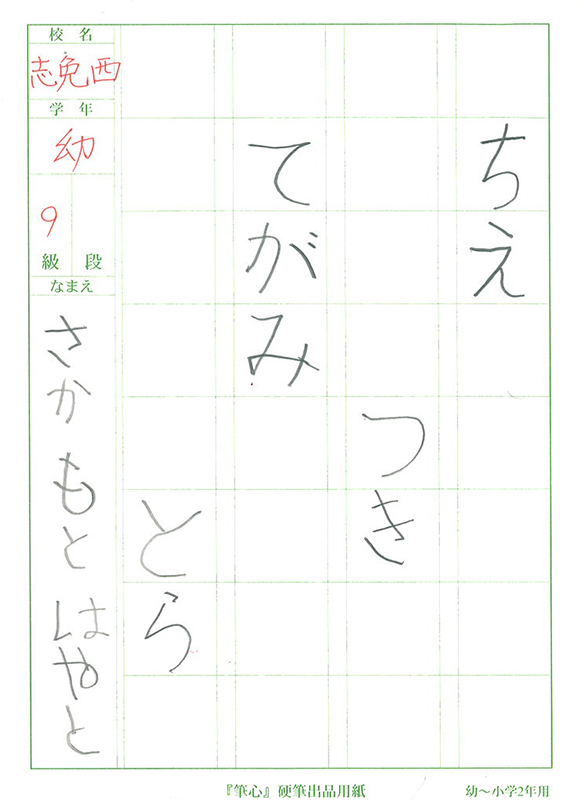 ちえ
つき
てがみ
とら
校名
志免西
学年
幼
9
級 段
なまえ
さかもと はやと
『筆心』硬筆出品用紙
幼〜小学2年用